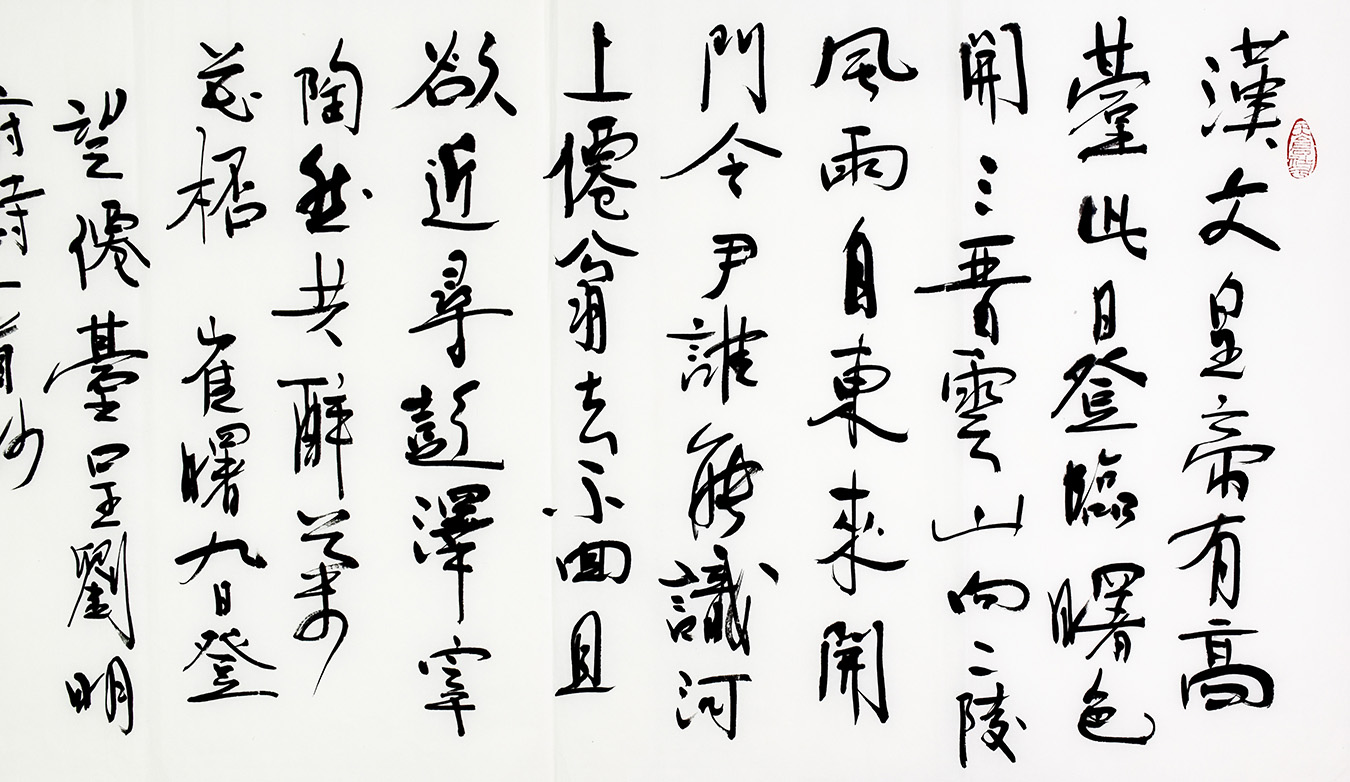 漢文皇帝有高
臺此日登臨曙色
開三晉雲山向二陵
風雨自東來開
門令尹誰能識河
上僊翁去不回且
欲近尋彭澤宰
陶然共醉菊
花桮 崔曙九日登
望僊臺呈劉明